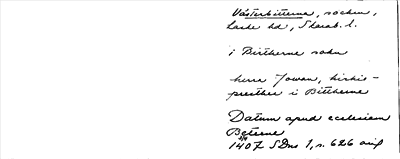 Västerbitterna, socken,
Laske hd, Skarab. l.
i Bittherne sokn
herre Jowan, kirkio-
presther i Bittherne
Datum apud ecclesiam
Beterne
1407 SDns 1, s. 626 avs